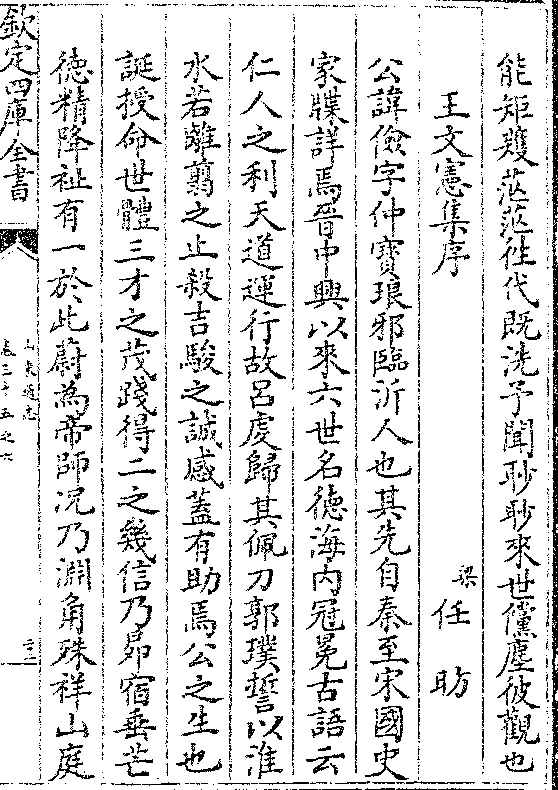 能矩矱茫茫徃代既洗予聞眇眇來世儻塵彼觀也
王文憲集序
梁任昉
公諱儉字仲寳琅邪臨沂人也其先自秦至宋國史
家牒詳焉晉中興以來六世名徳海内冠冕古語云
仁人之利天道運行故吕䖍歸其佩刀郭璞誓以淮
水若離翦之止殺吉駿之誠感葢有助焉公之生也
誕授命世體三才之茂踐得二之幾信乃昴宿垂芒
徳精降祉有一於此蔚為帝師况乃淵角殊祥山庭
欽定四庫全書
山東通志
卷三十五之六